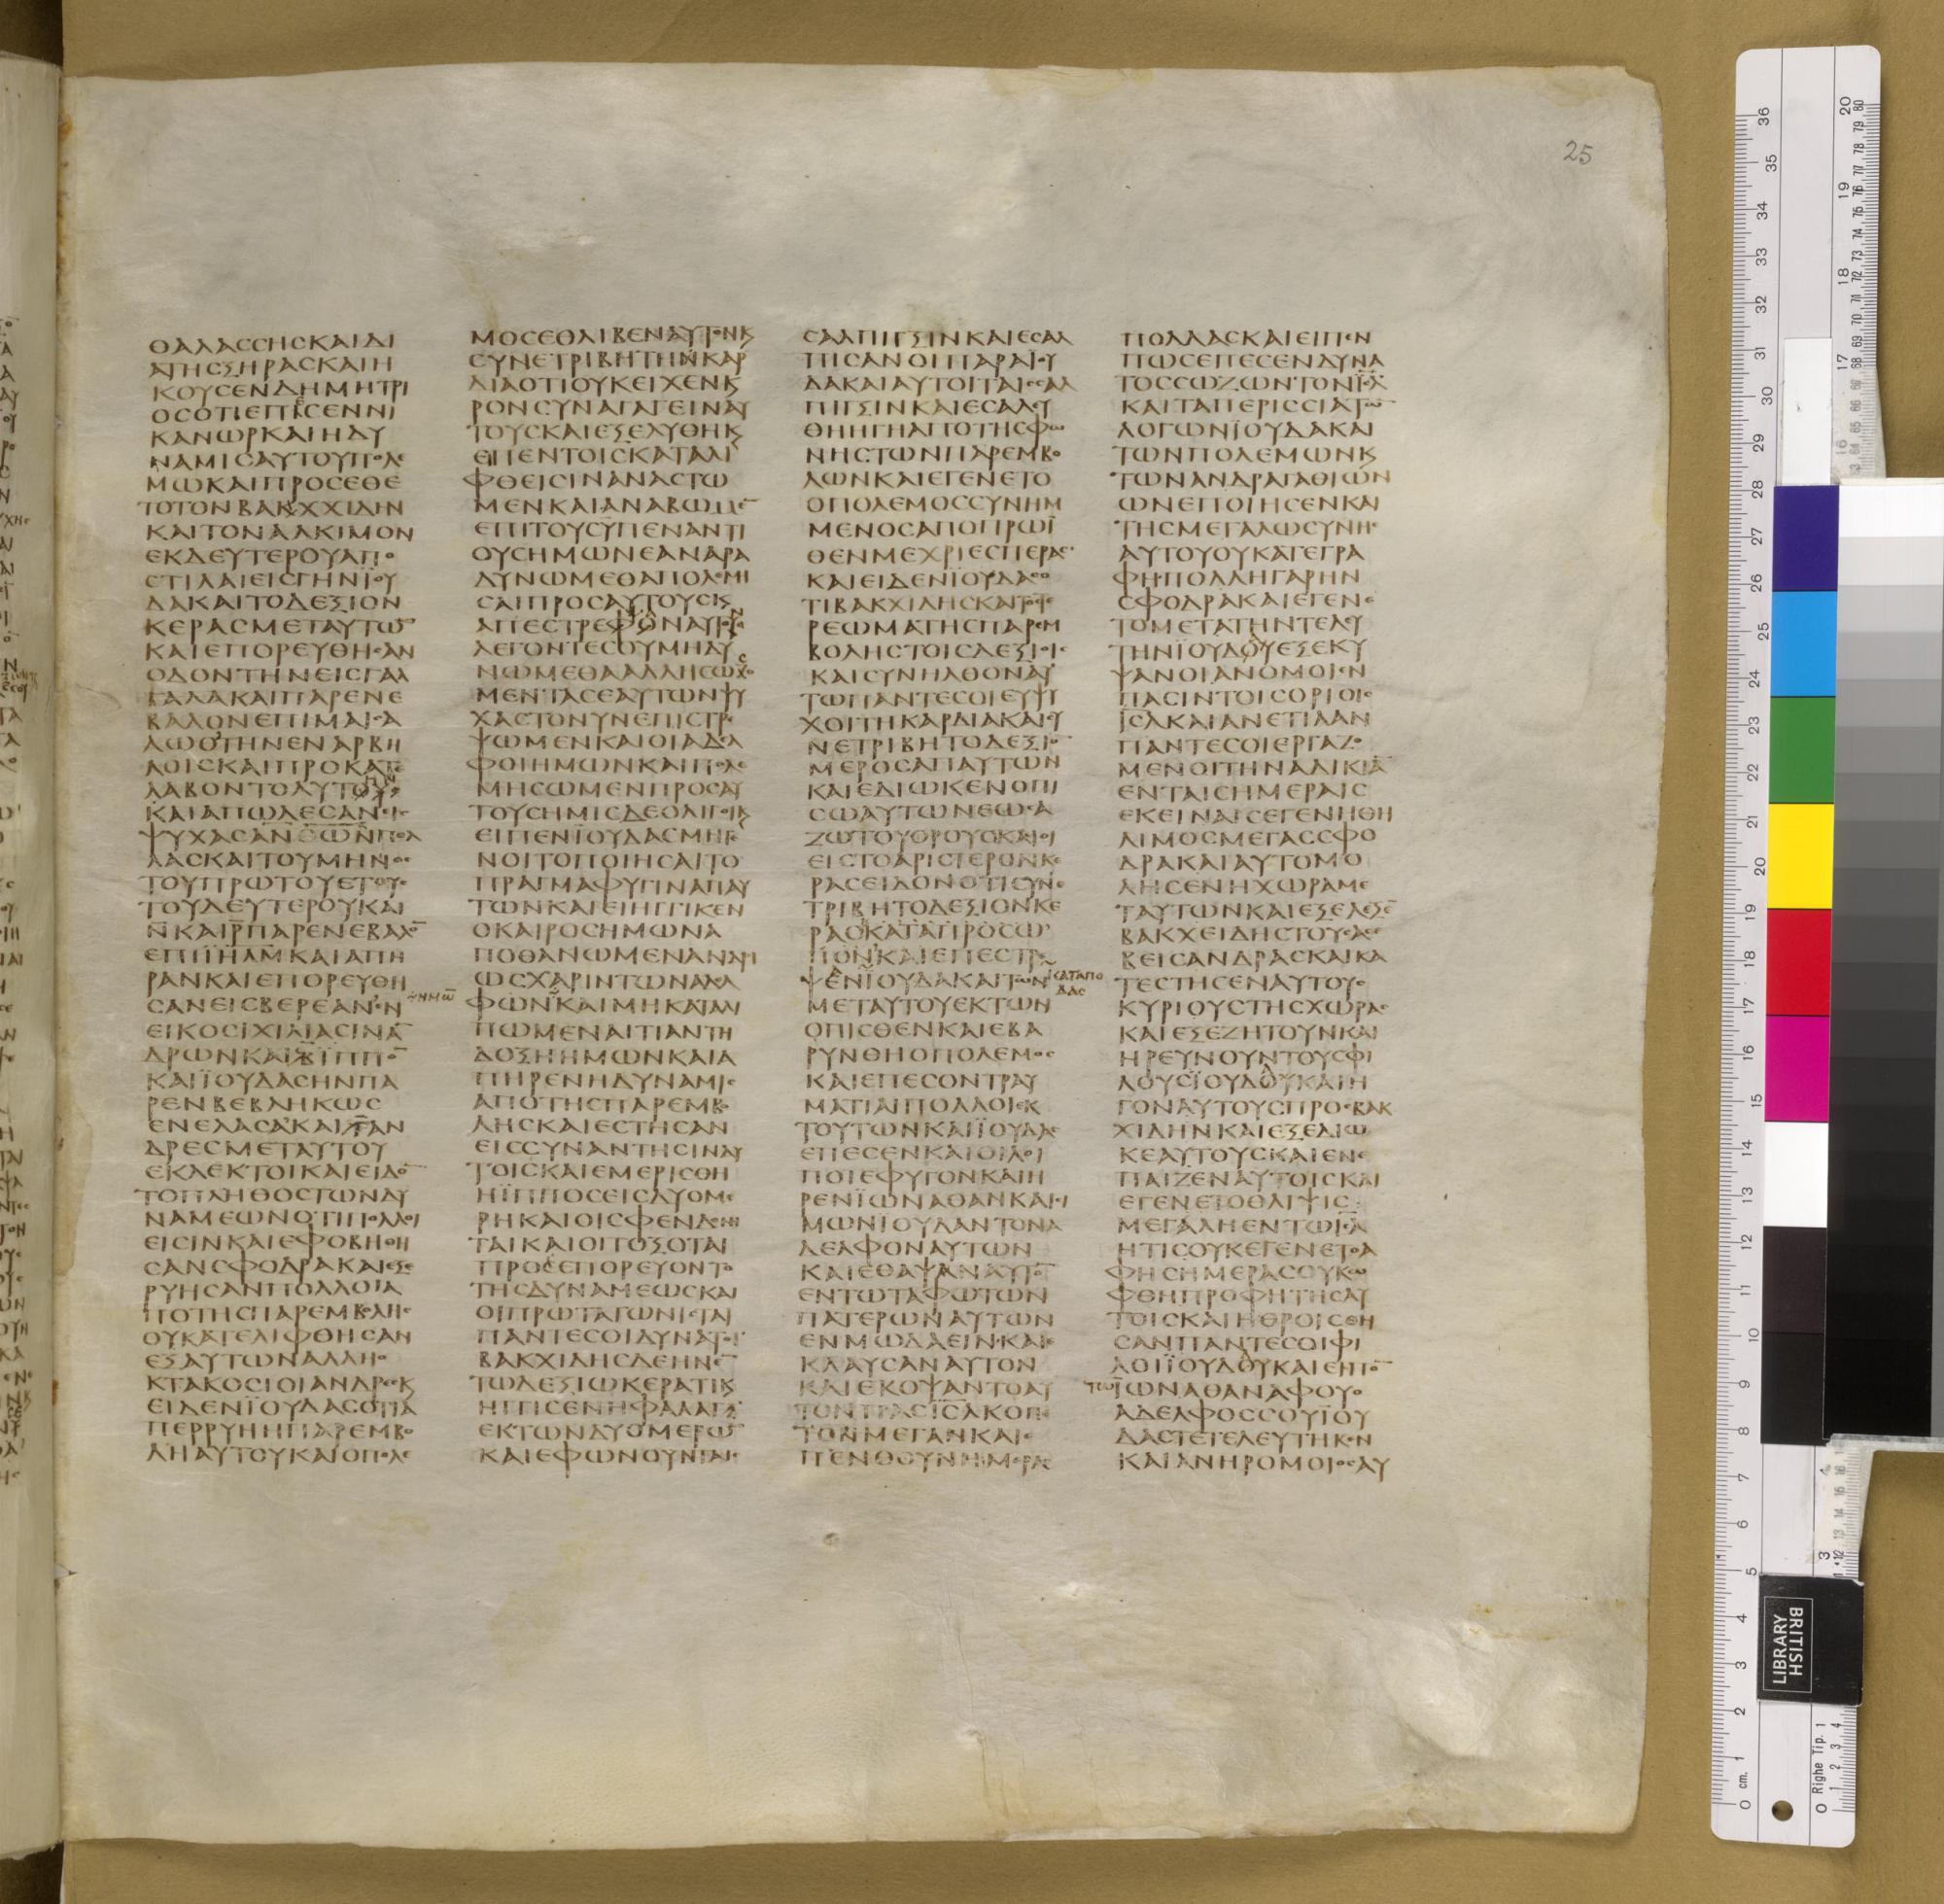 25
ΘΑΛΑCCΗCΚΑΙΔΙ
ΑΤΗCΞΗΡΑCΚΑΙΗ
ΚΟΥCΕΝΔΗΜΗΤΡΙ
ΟCΟΤΙΕΠΕCΕΝΝΙ
ΚΑΝΩΡΚΑΙΗΔΥ
ΝΑΜΙCΑΥΤΟΥΠΟΛΕ
ΜΩΚΑΙΠΡΟCΕΘΕ
ΤΟΤΟΝΒΑΚΧΧΙΔΗΝ
ΚΑΙΤΟΝΑΛΚΙΜΟΝ
ΕΚΔΕΥΤΕΡΟΥΑΠΟ
CΤΙΛΑΙΕΙCΓΗΝΪΟΥ
ΔΑΚΑΙΤΟΔΕΞΙΟΝ
ΚΕΡΑCΜΕΤΑΥΤΩ̅
ΚΑΙΕΠΟΡΕΥΘΗCΑΝ
ΟΔΟΝΤΗΝΕΙCΓΑΛ
ΓΑΛΑΚΑΙΠΑΡΕΝΕ
ΒΑΛΟΝΕΠΙΜΑΙCΑ
ΛΩΘΤΗΝΕΝΑΡΒΗ
ΛΟΙCΚΑΙΠΡΟΚΑΤΕ
ΛΑΒΟΝΤΟΑΥΤΟΥC
ΚΑΙΑΠΩΛΕCΑΝΕΙC
ΨΥΧΑCΑΝΩΝΠΟΛ
ΛΑCΚΑΙΤΟΥΜΗΝΟC
ΤΟΥΠΡΩΤΟΥΕΤΟΥC
ΤΟΥΔΕΥΤΕΡΟΥΚΑΙ
ΝΚΑΙΡΠΑΡΕΝΕΒΑΛΟ̅
ΕΠΙΪΗΛΜΚΑΙΑΠΗ
ΡΑΝΚΑΙΕΠΟΡΕΥΘΗ
CΑΝΕΙCΒΕΡΕΑΝΕΝ
ΕΙΚΟCΙΧΙΛΙΑCΙΝΑ̅
ΔΡΩΝΚΑΙΒΪΠΠΟ̅
ΚΑΙΪΟΥΔΑCΗΝΠΑ
ΡΕΝΒΕΒΛΗΚΩC
ΕΝΕΛΑCΑΚΑΙΓΑΝ
ΔΡΕCΜΕΤΑΥΤΟΥ
ΕΚΛΕΚΤΟΙΚΑΙΕΙΔΟ̅
ΤΟΠΛΗΘΟCΤΩΝΔΥ
ΝΑΜΕΩΝΟΤΙΠΟΛΛΟΙ
ΕΙCΙΝΚΑΙΕΦΟΒΗΘΗ
CΑΝCΦΟΔΡΑΚΑΙΕΞΕ
ΡΥΗCΑΝΠΟΛΛΟΙΑ
ΠΟΤΗCΠΑΡΕΜΒΟΛΗC
ΟΥΚΑΤΕΛΙΦΘΗCΑΝ
ΕΞΑΥΤΩΝΑΛΛΗΟ
ΚΤΑΚΟCΙΟΙΑΝΔΡΕCΚ
ΕΙΔΕΝΪΟΥΔΑCΟΤΙΑ
ΠΕΡΡΥΗΗΠΑΡΕΜΒΟ
ΛΗΑΥΤΟΥΚΑΙΟΠΟΛΕ
ΜΟCΕΘΛΙΒΕΝΑΥΤΟΝΚ
CΥΝΕΤΡΙΒΗΤΗΝΚΑΡ
ΔΙΑΟΤΙΟΥΚΕΙΧΕΝΚ
ΡΟΝCΥΝΑΓΑΓΕΙΝΑΥ
ΤΟΥCΚΑΙΕΞΕΛΥΘΗΚ
ΕΙΠΕΝΤΟΙCΚΑΤΑΛΙ
ΦΘΕΙCΙΝΑΝΑCΤΩ
ΜΕΝΚΑΙΑΝΑΒΩΜΕ̅
ΕΠΙΤΟΥCΥΠΕΝΑΝΤΙ
ΟΥCΗΜΩΝΕΑΝΑΡΑ
ΔΥΝΩΜΕΘΑΠΟΛΕΜΙ
CΑΙΠΡΟCΑΥΤΟΥCΚ
ΑΠΕCΤΡΕΦΟΝΑΥΤΟΝ
ΛΕΓΟΝΤΕCΟΥΜΗΔΥ
ΝΩΜΕΘΑΑΛΛΗCΩΧΟ
ΜΕΝΤΑCΕΑΥΤΩΝΨΥ
ΧΑCΤΟΝΥΝΕΠΙCΤΡΕ
ΨΩΜΕΝΚΑΙΟΙΑΔΕΛ
ΦΟΙΗΜΩΝΚΑΙΠΟΛΕ
ΜΗCΩΜΕΝΠΡΟCΑΥ
ΤΟΥCΗΜΙCΔΕΟΛΙΓΟΙΚ
ΕΙΠΕΝΪΟΥΔΑCΜΗΓΕ
ΝΟΙΤΟΠΟΙΗCΑΙΤΟ
ΠΡΑΓΜΑΦΥΓΙΝΑΠΑΥ
ΤΩΝΚΑΙΕΙΗΓΓΙΚΕΝ
ΟΚΑΙΡΟCΗΜΩΝΑ
ΠΟΘΑΝΩΜΕΝΑΝΔΡΙ
ΩCΧΑΡΙΝΤΩΝΑΔΕΛ
ΗΜΩ̅
ΦΩΝΚΑΙΜΗΚΑΤΑΛΙ
ΠΩΜΕΝΑΙΤΙΑΝΤΗ
ΔΟΞΗΗΜΩΝΚΑΙΑ
ΠΗΡΕΝΗΔΥΝΑΜΙC
ΑΠΟΤΗCΠΑΡΕΜΒΟ
ΛΗCΚΑΙΕCΤΗCΑΝ
ΕΙCCΥΝΑΝΤΗCΙΝΑΥ
ΤΟΙCΚΑΙΕΜΕΡΙCΘΗ
ΗΪΠΠΟCΕΙCΔΥΟΜΕ
ΡΗΚΑΙΟΙCΦΕΝΔΟΝΗ
ΤΑΙΚΑΙΟΙΤΟΞΟΤΑΙ
ΠΡΟΕΠΟΡΕΥΟΝΤΟ
ΤΗCΔΥΝΑΜΕΩCΚΑΙ
ΟΙΠΡΩΤΑΓΩΝΙCΤΑΙ
ΠΑΝΤΕCΟΙΔΥΝΑΤΟΙ
ΒΑΚΧΙΔΗCΔΕΗΝΕ̅
ΤΩΔΕΞΙΩΚΕΡΑΤΙΚ
ΗΓΓΙCΕΝΗΦΑΛΑΓΞ
ΕΚΤΩΝΔΥΟΜΕΡΩ̅
ΚΑΙΕΦΩΝΟΥΝΤΑΙC
CΑΛΠΙΓΞΙΝΚΑΙΕCΑΛ
ΠΙCΑΝΟΙΠΑΡΑΪΟΥ
ΔΑΚΑΙΑΥΤΟΙΤΑΙCCΑΛ
ΠΙΓΞΙΝΚΑΙΕCΑΛΕΥ
ΘΗΗΓΗΑΠΟΤΗCΦΩ
ΝΗCΤΩΝΠΑΡΕΜΒΟ
ΛΩΝΚΑΙΕΓΕΝΕΤΟ
ΟΠΟΛΕΜΟCCΥΝΗΜ
ΜΕΝΟCΑΠΟΠΡΩΪ
ΘΕΝΜΕΧΡΙΕCΠΕΡΑC
ΚΑΙΕΙΔΕΝΪΟΥΔΑCΟ
ΤΙΒΑΚΧΙΔΗCΚΑΙΤΟCΤΕ
ΡΕΩΜΑΤΗCΠΑΡΕΜ
ΒΟΛΗCΤΟΙCΔΕΞΙΟΙC
ΚΑΙCΥΝΗΛΘΟΝΑΥ
ΤΩΠΑΝΤΕCΟΙΕΥΨΥ
ΧΟΙΤΗΚΑΡΔΙΑΚΑΙCΥ
ΝΕΤΡΙΒΗΤΟΔΕΞΙΟ̅
ΜΕΡΟCΑΠΑΥΤΩΝ
ΚΑΙΕΔΙΩΚΕΝΟΠΙ
CΩΑΥΤΩΝΕΩCΑ
ΖΩΤΟΥΟΡΟΥCΚΑΙΟΙ
ΕΙCΤΟΑΡΙCΤΕΡΟΝΚΕ
ΡΑCΕΙΔΟΝΟΤΙCΥΝΕ
ΤΡΙΒΗΤΟΔΕΞΙΟΝΚΕ
ΡΑCΚΑΤΑΠΡΟCΩ
ΠΟΝΚΑΙΕΠΕCΤΡΕ
ΨΕΝΪΟΥΔΑΚΑΙΤΩΝ
ΚΑΤΑΠΟ
ΔΑC
ΜΕΤΑΥΤΟΥΕΚΤΩΝ
ΟΠΙCΘΕΝΚΑΙΕΒΑ
ΡΥΝΘΗΟΠΟΛΕΜΟC
ΚΑΙΕΠΕCΟΝΤΡΑΥ
ΜΑΤΙΑΙΠΟΛΛΟΙΕΚ
ΤΟΥΤΩΝΚΑΙΪΟΥΔΑC
ΕΠΕCΕΝΚΑΙΟΙΛΟΙ
ΠΟΙΕΦΥΓΟΝΚΑΙΗ
ΡΕΝΪΩΝΑΘΑΝΚΑΙCΙ
ΜΩΝΪΟΥΔΑΝΤΟΝΑ
ΔΕΛΦΟΝΑΥΤΩΝ
ΚΑΙΕΘΑΨΑΝΑΥΤΟ̅
ΕΝΤΩΤΑΦΩΤΩΝ
ΠΑΤΕΡΩΝΑΥΤΩΝ
ΕΝΜΩΔΑΕΙΝΚΑΙΕ
ΚΛΑΥCΑΝΑΥΤΟΝ
ΚΑΙΕΚΟΨΑΝΤΟΑΥ
ΤΟΝΠΑCΙCΛΚΟΠΕ
ΤΟΝΜΕΓΑΝΚΑΙΕ
ΠΕΝΘΟΥΝΗΜΕΡΑC
ΠΟΛΛΑCΚΑΙΕΙΠΟΝ
ΠΩCΕΠΕCΕΝΔΥΝΑ
ΤΟCCΩΖΩΝΤΟΝΙCΛ
ΚΑΙΤΑΠΕΡΙCCΙΑΤΩ̅
ΛΟΓΩΝΪΟΥΔΑΚΑΙ
ΤΩΝΠΟΛΕΜΩΝΚ
ΤΩΝΑΝΔΡΑΓΑΘΙΩΝ
ΩΝΕΠΟΙΗCΕΝΚΑΙ
ΤΗCΜΕΓΑΛΩCΥΝΗC
ΑΥΤΟΥΟΥΚΑΤΕΓΡΑ
ΦΗΠΟΛΛΗΓΑΡΗΝ
CΦΟΔΡΑΚΑΙΕΓΕΝΕ
ΤΟΜΕΤΑΤΗΝΤΕΛΕΥ
ΤΗΝΪΟΥΔΟΥΕΞΕΚΥ
ΨΑΝΟΙΑΝΟΜΟΙΕΝ
ΠΑCΙΝΤΟΙCΟΡΙΟΙC
ΙCΛΚΑΙΑΝΕΤΙΛΑΝ
ΠΑΝΤΕCΟΙΕΡΓΑΖΟ
ΜΕΝΟΙΤΗΝΑΔΙΚΙΑ̅
ΕΝΤΑΙCΗΜΕΡΑΙC
ΕΚΕΙΝΑΙCΕΓΕΝΗΘΗ
ΛΙΜΟCΜΕΓΑCCΦΟ
ΔΡΑΚΑΙΑΥΤΟΜΟ
ΛΗCΕΝΗΧΩΡΑΜΕ
ΤΑΥΤΩΝΚΑΙΕΞΕΛΕΞΕ̅
ΒΑΚΧΕΙΔΗCΤΟΥCΑCΕ
ΒΕΙCΑΝΔΡΑCΚΑΙΚΑ
ΤΕCΤΗCΕΝΑΥΤΟΥC
ΚΥΡΙΟΥCΤΗCΧΩΡΑC
ΚΑΙΕΞΕΖΗΤΟΥΝΚΑΙ
ΗΡΕΥΝΟΥΝΤΟΥCΦΙ
ΛΟΥCΪΟΥΔΟΥΚΑΙΗ
ΓΟΝΑΥΤΟΥCΠΡΟCΒΑΚ
ΧΙΔΗΝΚΑΙΕΞΕΔΙΩ
ΚΕΑΥΤΟΥCΚΑΙΕΝΕ
ΠΑΙΖΕΝΑΥΤΟΙCΚΑΙ
ΕΓΕΝΕΤΟΘΛΙΨΙC
ΜΕΓΑΛΗΕΝΤΩΙCΛ
ΗΤΙCΟΥΚΕΓΕΝΕΤΟΑ
ΦΗCΗΜΕΡΑCΟΥΚΩ
ΦΘΗΠΡΟΦΗΤΗCΑΥ
ΤΟΙCΚΑΙΗΘΡΟΙCΘΗ
CΑΝΠΑΝΤΕCΟΙΦΙ
ΛΟΙΪΟΥΔΟΥΚΑΙΕΙΠΟ̅
ΤΩΪΩΝΑΘΑΝΑΦΟΥΟ
ΑΔΕΛΦΟCCΟΥΪΟΥ
ΔΑCΤΕΤΕΛΕΥΤΗΚΕΝ
ΚΑΙΑΝΗΡΟΜΟΙΟCΑΥ
BRITISH
LIBRARY
0 cm. 1 2 3 4 5 6 7 8 9 10 11 12 13 14 15 16 17 18 19 20 21 22 23 24 25 26 27 28 29 30 31 32 33 34 35 36
0 Righe Tip. 1